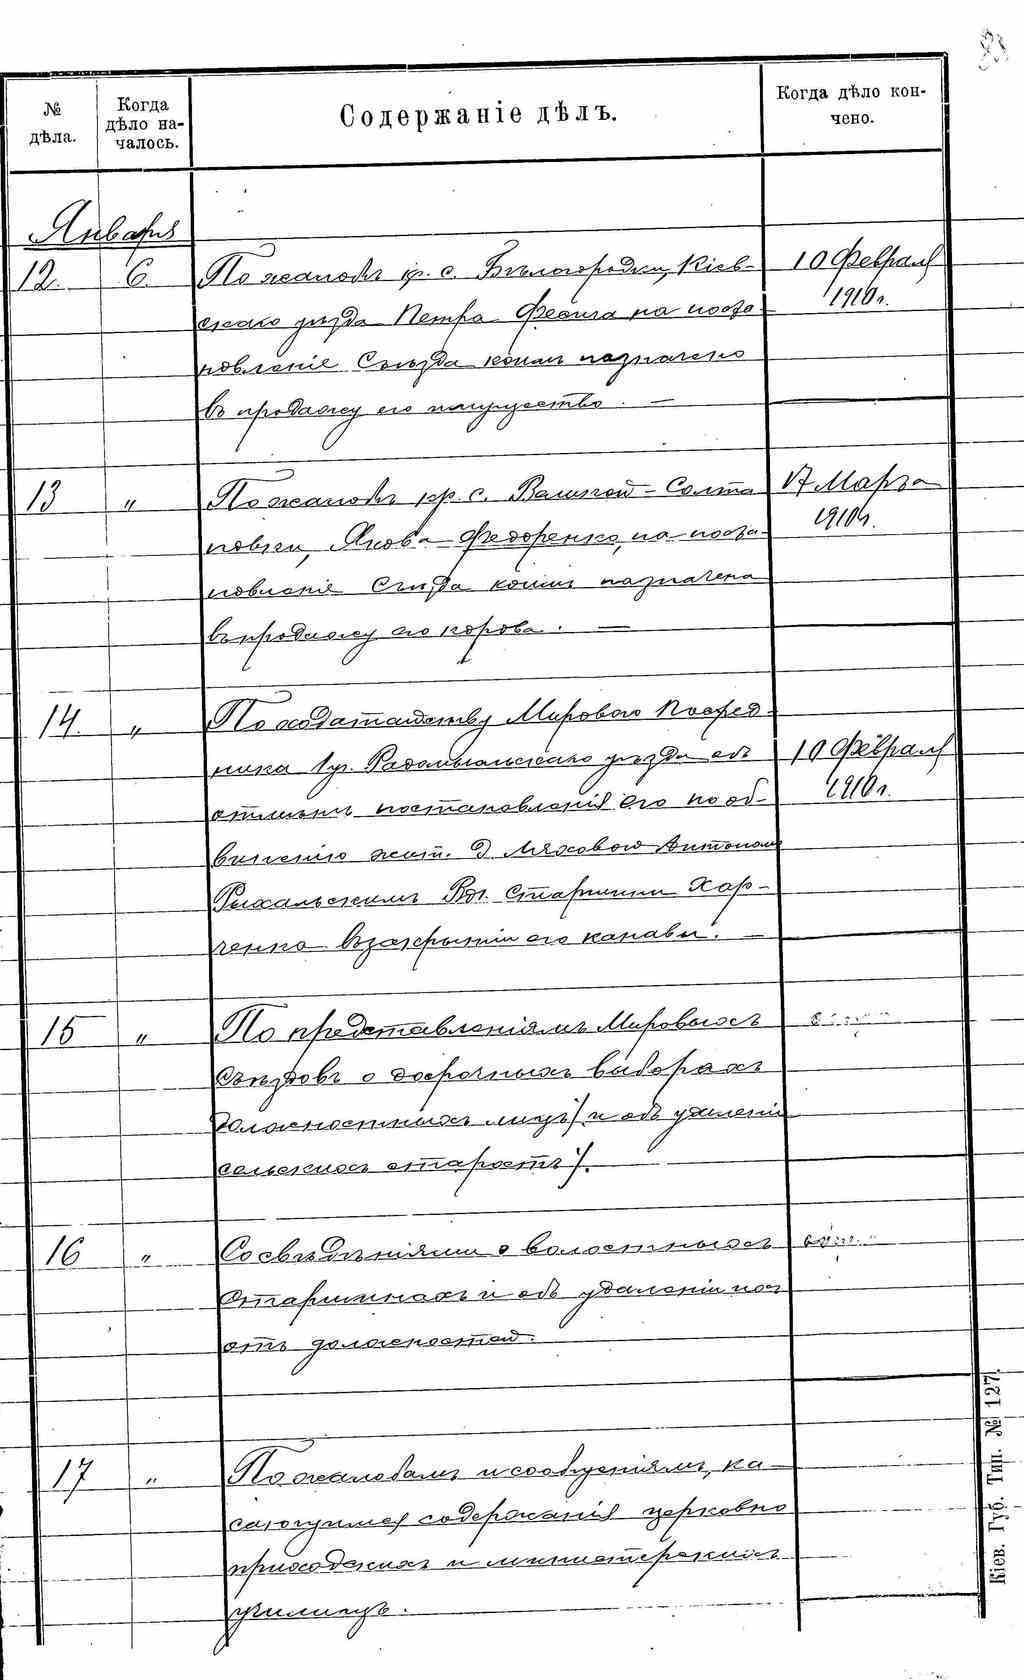 23
№ дѣла.
Когда дѣло на-
чалось.
Содержаніе дѣлъ.
Когда дѣло кон-
чено.
Января
12. 6. По жалобѣ кр. с. Бѣлогородки, Кіев- 10 Февраля
скаго уѣзда Петра на поста- 1910 г.
новленіе Съѣзда коимъ назначено
въ продажу его имущество. —
13 " По жалобѣ кр. с. Великой-Солта 17 Марта
новки, Якова Федоренко, на поста- 1910 г.
новленіе Съѣзда коимъ назначена
въ продажу его корова. —
14. " По ходатайству Мирового Посред-
ника 1 уч. Радомысльскаго уѣзда объ 10 Февраля
отмѣнѣ постановленія его по об- 1910 г.
виненію жит. д. Мяховой Антономъ
Рыхальскимъ Вол. Старшины Хар-
ченко въ закрытіи его канавы. —
15 " По представленіямъ Мировыхъ
Съѣздовъ о досрочныхъ выборахъ
должностныхъ лицъ/ и объ удаленіи
сельскихъ старостъ/.
16 " Со свѣдѣніями о волостныхъ
Старшинахъ и объ удаленіи ихъ
отъ должностей.
17 " По жалобамъ и сообщеніямъ, ка-
сающимся содержанія церковно
приходскихъ и министерскихъ
училищъ.
Кіев. Губ. Тип. № 127.